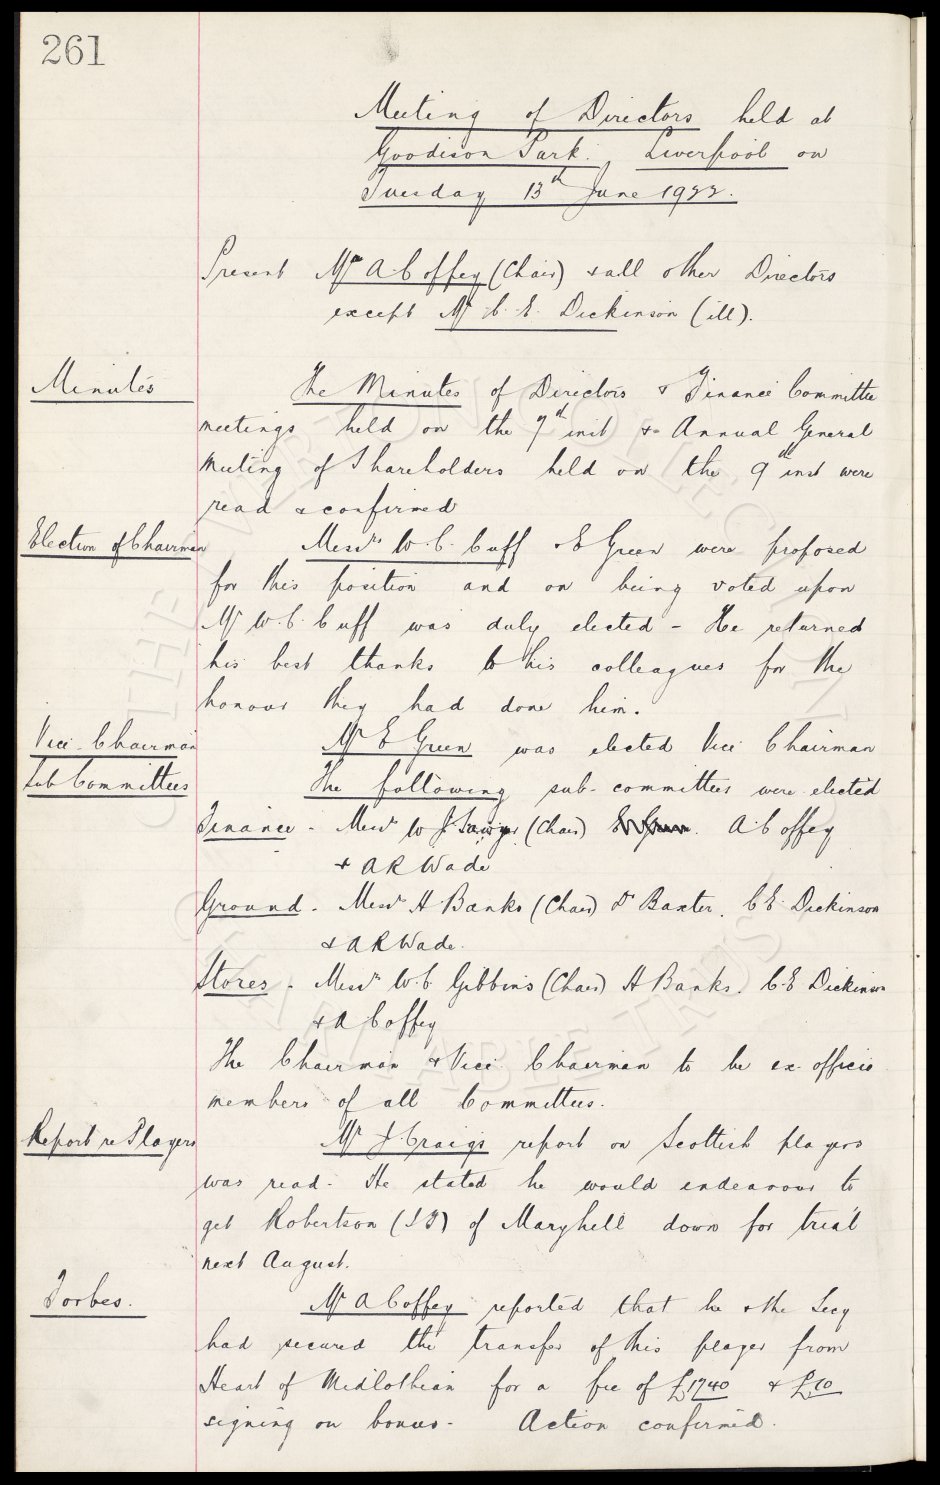 261
Meeting of Directors held at
Goodison Park. Liverpool on
Tuesday 13th June 1922.
Present Mr A Coffey (Chair) & all other Directors
except Mr C. E. Dickinson (ill).
Minutes
The Minutes of Directors & Finance Committee
meetings held on the 7th inst & Annual General
Meeting of Shareholders held on the 9th inst were
read & confirmed
Election of Chairman
Messrs W. C. Cuff & E Green were proposed
for this position and on being voted upon
Mr W. C. Cuff was duly elected - He returned
his best thanks to his colleagues for the
honour they had done him.
Vice-Chairman
Mr E Green was elected Vice Chairman
Sub Committees
The following sub-committees were elected
Finance - Messrs W J Sawyer (Chair) E Green. A Coffey
& A R Wade
Ground - Messrs H Banks (Chair) Dr Baxter. C E Dickinson
& A R Wade.
Stores - Messrs W. C Gibbins (Chair) H Banks. C. E Dickinson
& A Coffey
The Chairman & Vice Chairman to be ex-officio
members of all Committees.
Report re Players
Mr J. Craig's report on Scottish players
was read - He stated he would endeavour to
get Robertson (I F) of Maryhill down for trial
next August.
Forbes.
Mr A Coffey reported that he & the Secy
had secured the transfer of this player from
Heart of Midlothian for a fee of £1740 & £10
signing on bonus - Action confirmed.
THE EVERTON COLLECTION
CHARITABLE TRUST